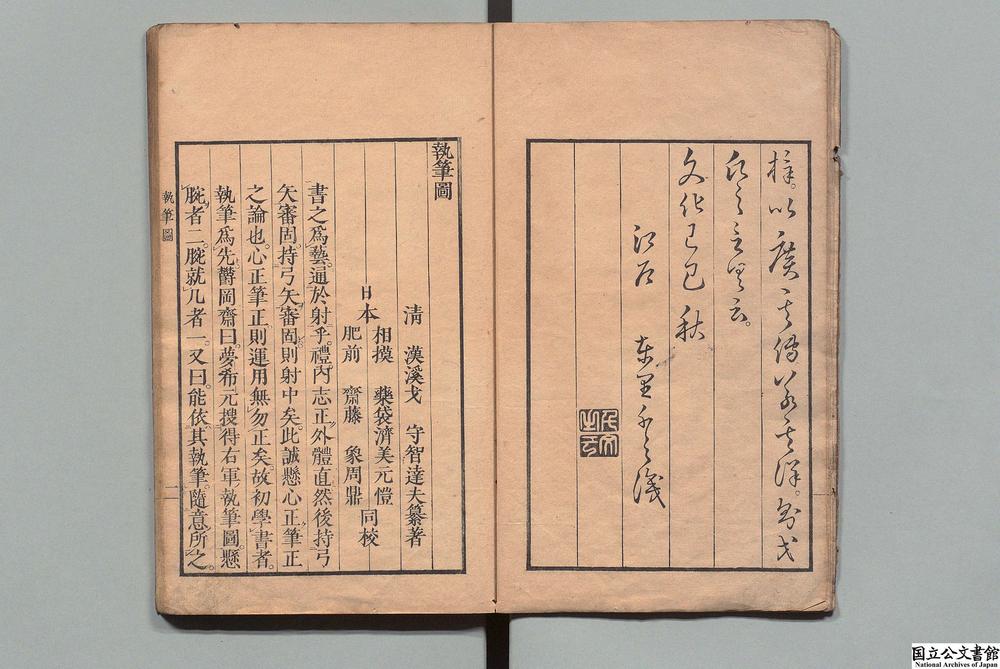 梓。以廣其傳若其詳。則戈
氏之言
文化己巳秋
東里
執筆圖
清 漢溪戈 守智達夫纂著
日本
相摸 藥袋濟美元愷
肥前 齋藤 象周鼎 同校
書之爲藝。通於射乎。禮。內志正。外體直。然後持弓
矢審固。持弓矢審固。則射中矣。此誠懸心正筆正
之論也。心正筆正則運用無勿正矣。故初學書者。
執筆爲先。欝岡齋曰。夢希元搜得右軍執筆圖。懸
腕者二。腕就几者一。又曰。能依其執筆。隨意所之。
執筆圖 一
国立公文書館
National Archives of Japan